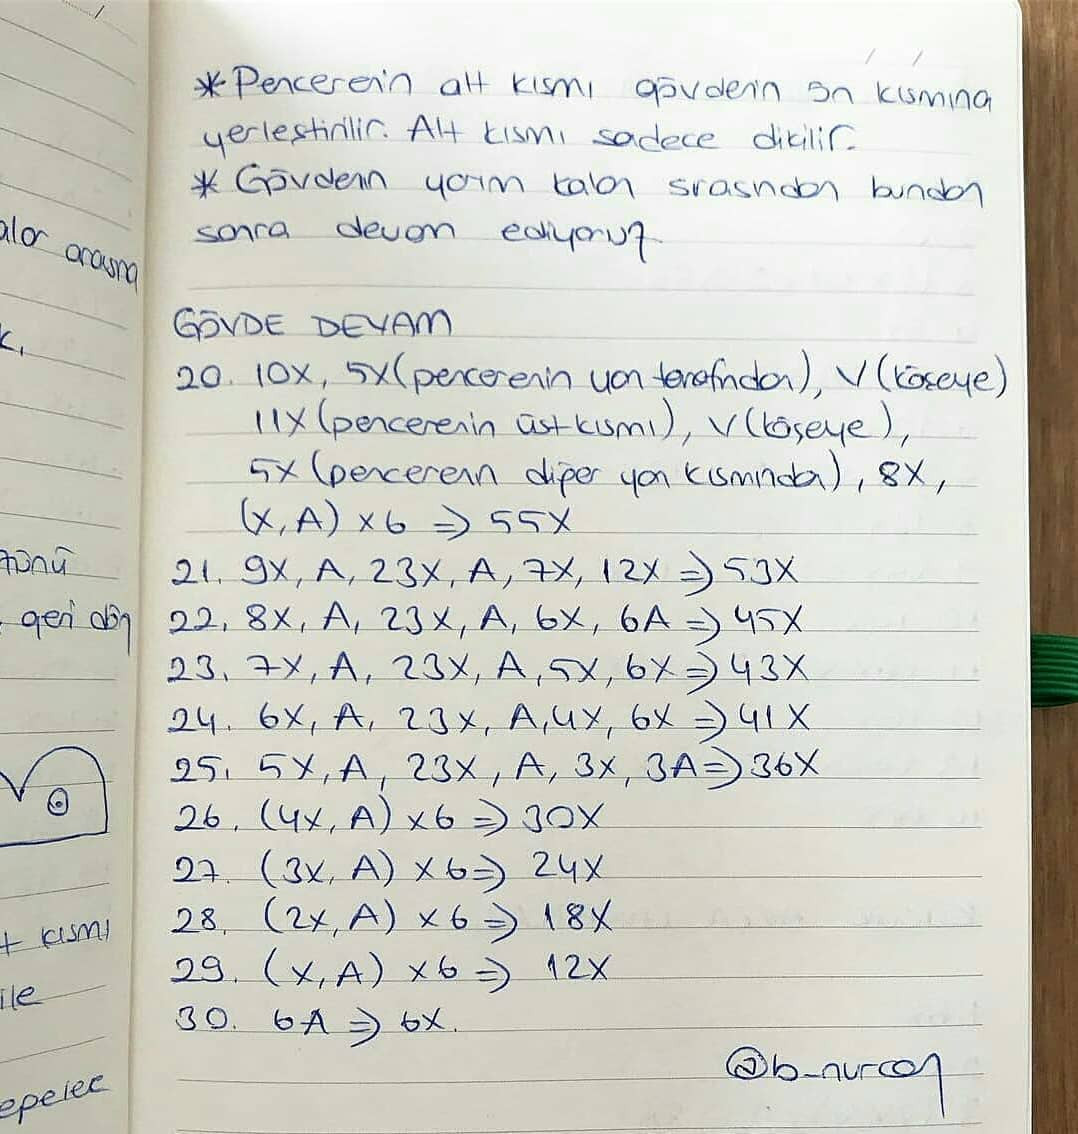 * Pencerenin alt kısmı gövdenin ön kısmına
yerleştirilir. Alt kısmı sadece dikilir.
* Gövdenin yarım kalan sırasından bundan
sonra devam ediyoruz
GÖVDE DEVAM
20. 10X, 5X (pencerenin yan tarafından), V (köşeye)
11X (pencerenin üst kısmı), V (köşeye),
5X (pencerenin diğer yan kısmından), 8X,
(X, A) x6 => 55X
21. 9X, A, 23X, A, 7X, 12X => 53X
22. 8X, A, 23X, A, 6X, 6A => 45X
23. 7X, A, 23X, A, 5X, 6X => 43X
24. 6X, A, 23X, A, 4X, 6X => 41X
25. 5X, A, 23X, A, 3X, 3A => 36X
26. (4X, A) x6 => 30X
27. (3X, A) x6 => 24X
28. (2X, A) x6 => 18X
29. (X, A) x6 => 12X
30. 6A => 6X.
@b_nurcan
alar arasına
geri dön
kısmı
ile